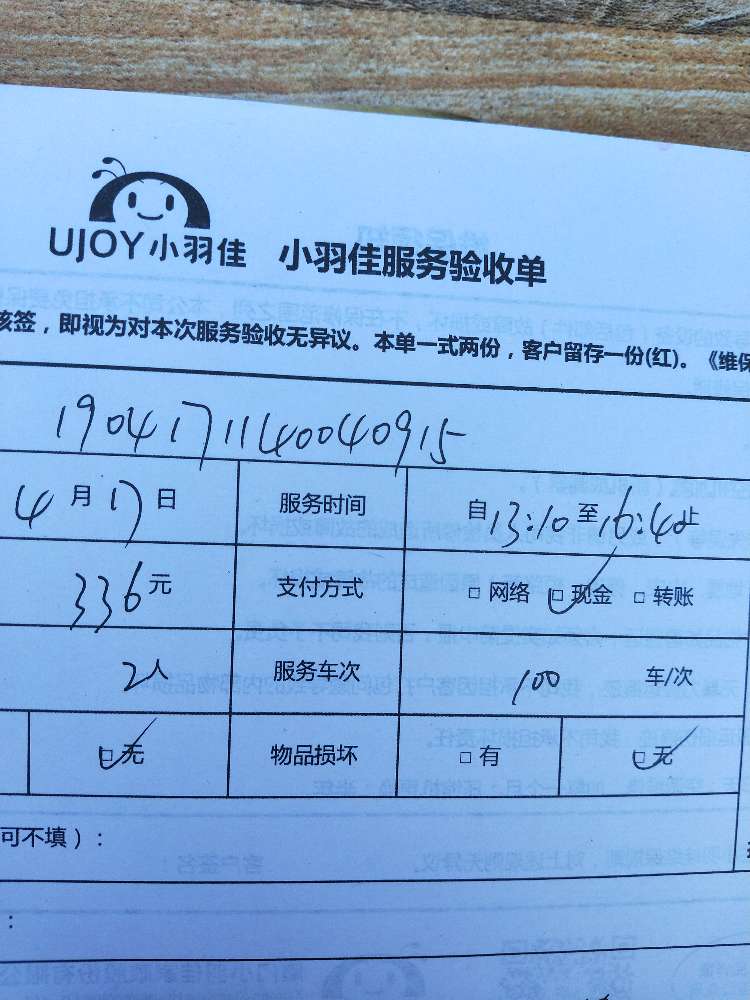 UJOY小羽佳 小羽佳服务验收单
核签，即视为对本次服务验收无异议。本单一式两份，客户留存一份(红)。《维保
1904171140040915
4月17日 服务时间 自13:10至16:40止
336元 支付方式 □网络 □现金 □转账
2人 服务车次 100 车/次
□无 物品损坏 □有 □无
可不填）：
：